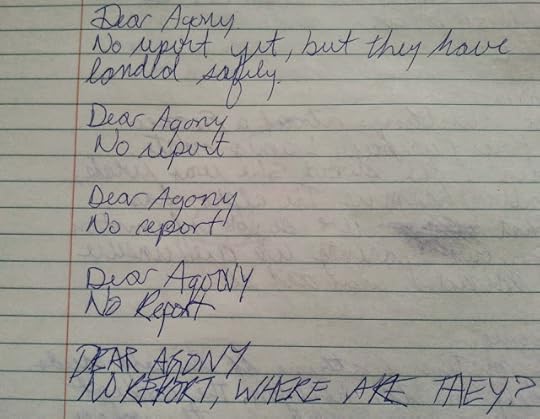 Dear Agony
No report yet, but they have
landed safely.
Dear Agony
No report
Dear Agony
No report
Dear AgoNY
No Report
DEAR AGONY
NO REPORT, WHERE ARE THEY?